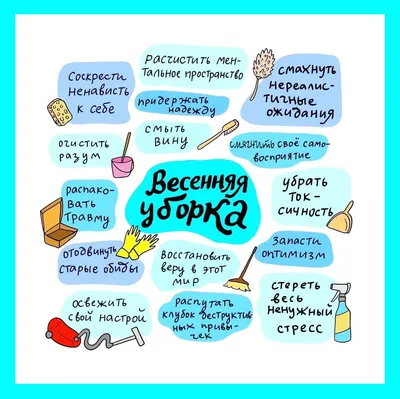 Соскрести
ненависть
к себе
расчистить мен-
тальное пространство
смахнуть
нереалис-
тичные
ожидания
придержать
надежду
очистить
разум
смыть
вину
смягчить своё само-
восприятие
распако-
вать
травму
Весенняя
уборка
убрать
ток-
сичность
отодвинуть
старые обиды
восстановить
веру в этот
мир
Запасти
оптимизм
освежить
свой настрой
распутать
клубок деструктив-
ных привы-
чек
стереть
весь
ненужный
стресс